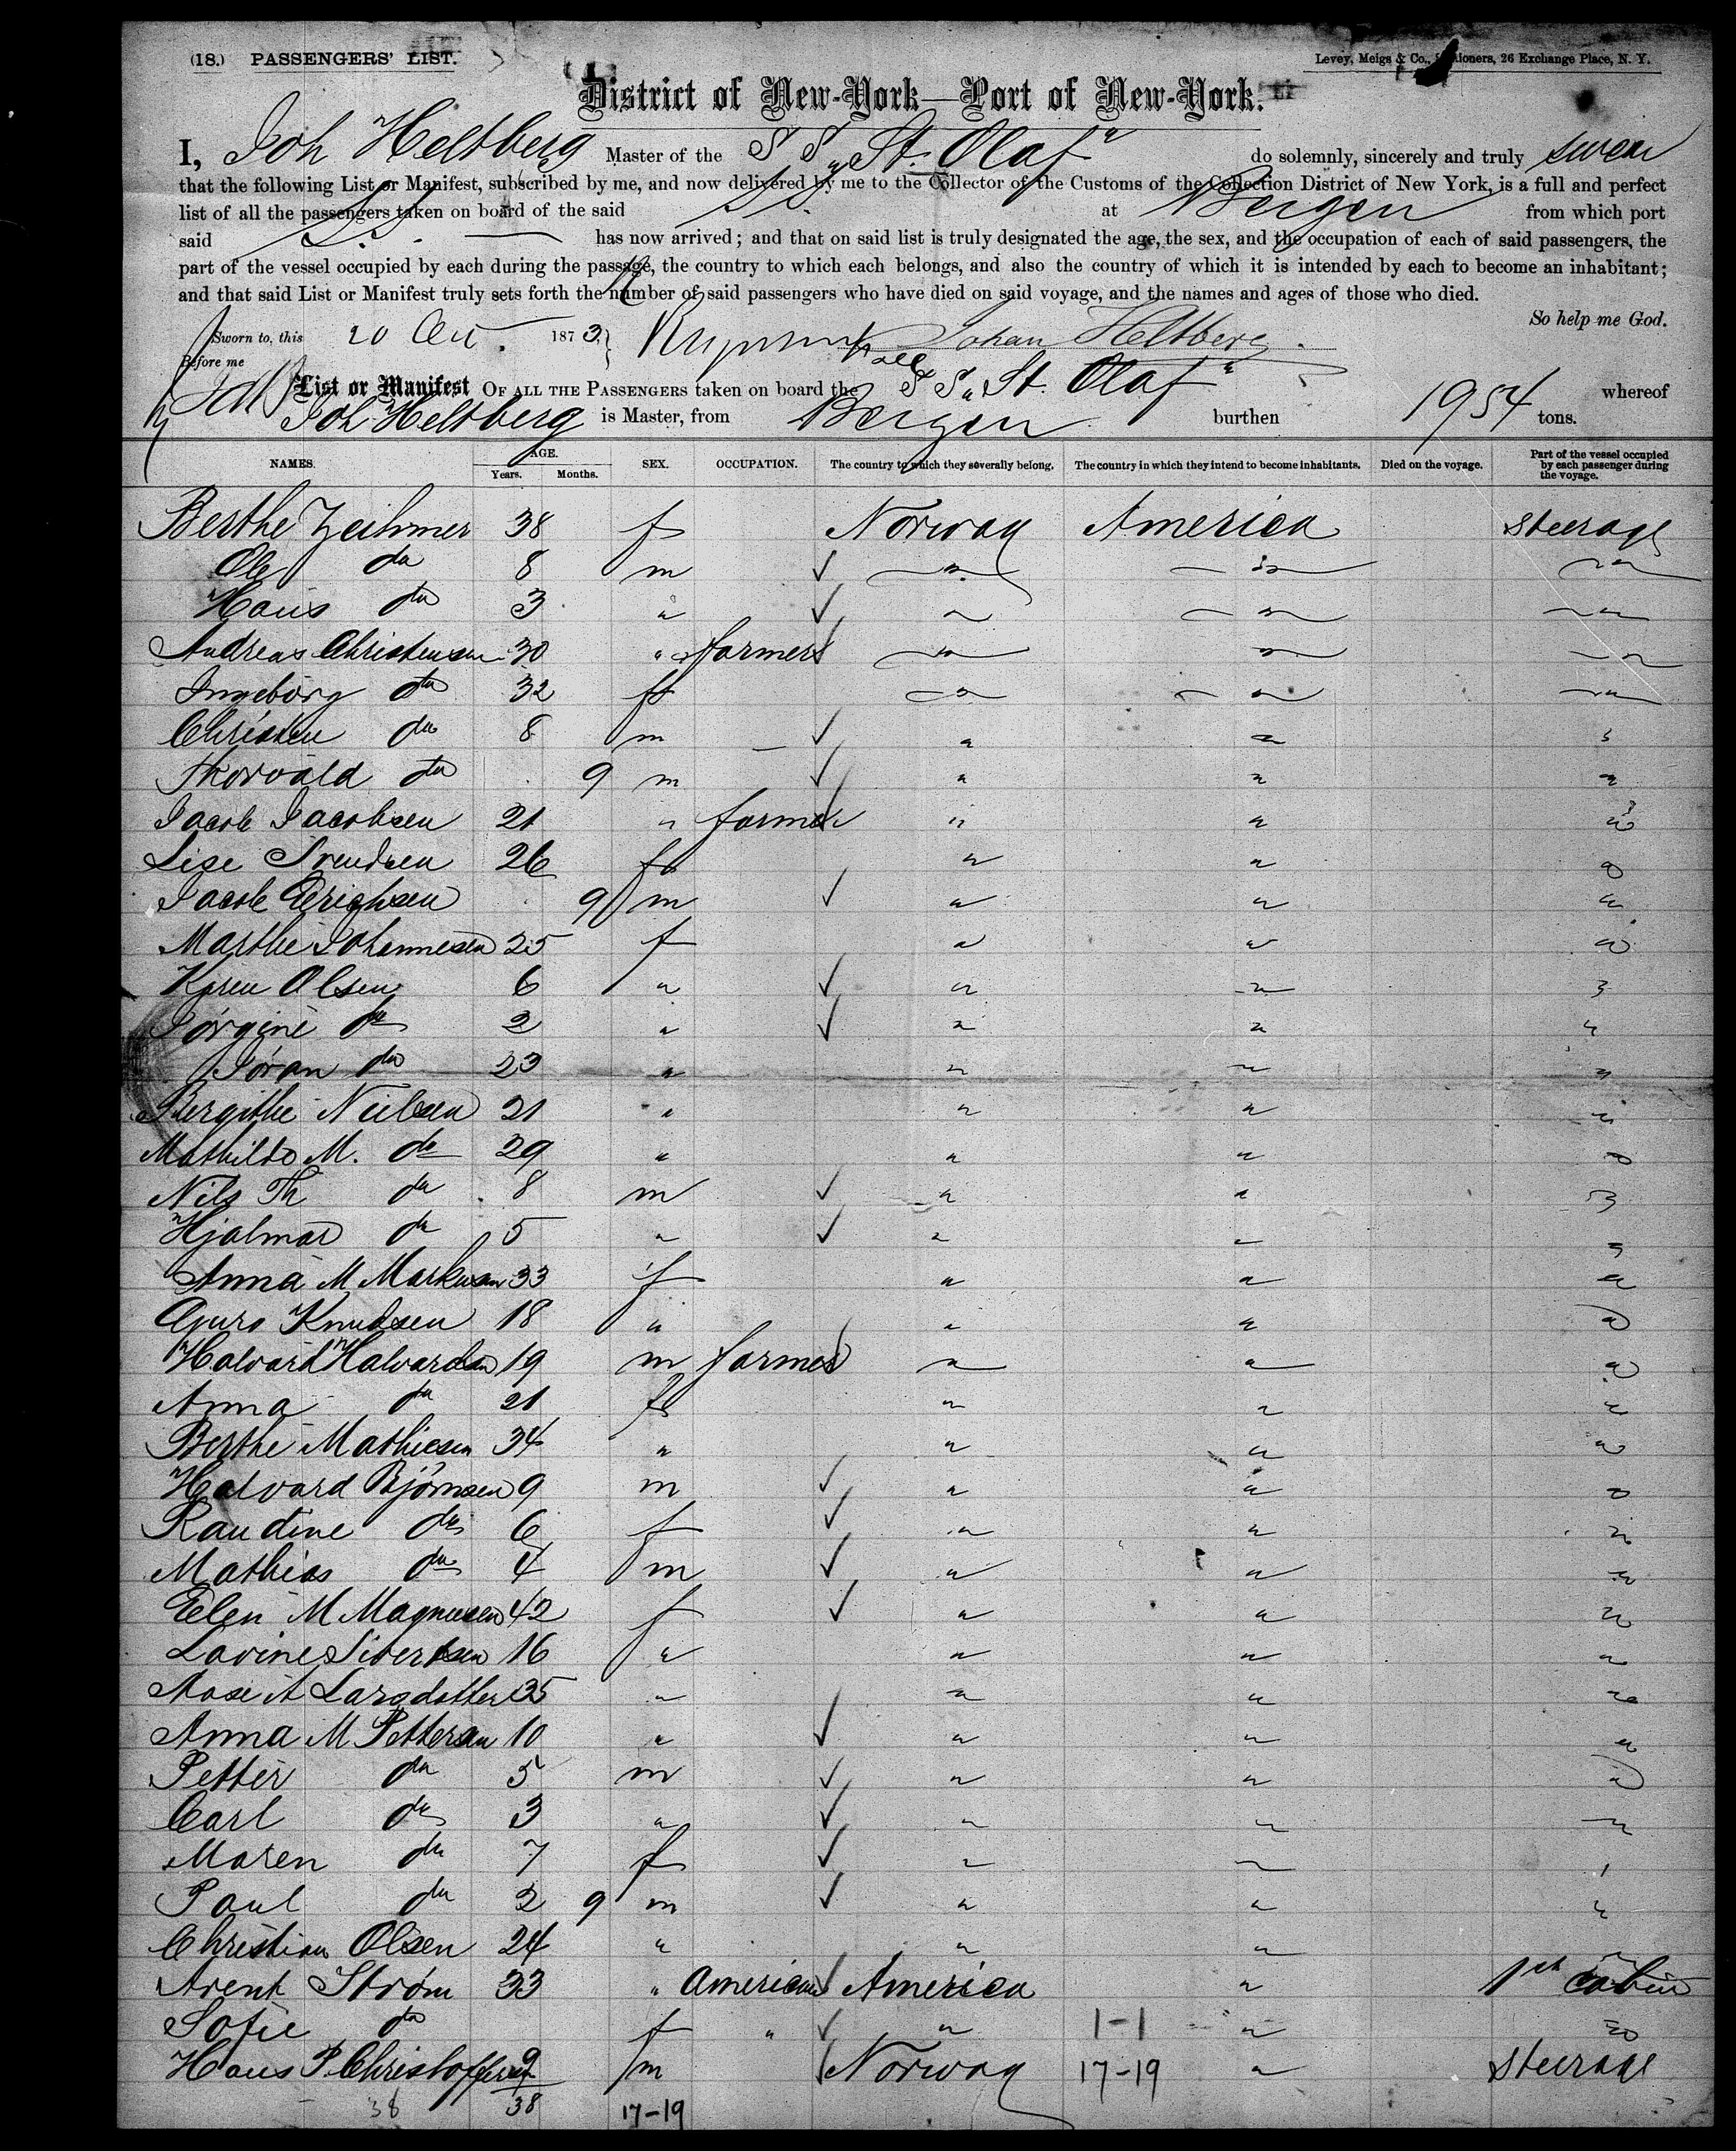 (18.) PASSENGERS' LIST.
Levey, Meigs & Co., Stationers, 26 Exchange Place, N. Y.
District of New-York—Port of New-York.
I, Joh Heltberg Master of the S S „St. Olaf" do solemnly, sincerely and truly swear
that the following List or Manifest, subscribed by me, and now delivered by me to the Collector of the Customs of the Collection District of New York, is a full and perfect
list of all the passengers taken on board of the said S.S. at Bergen from which port
said S.S. has now arrived; and that on said list is truly designated the age, the sex, and the occupation of each of said passengers, the
part of the vessel occupied by each during the passage, the country to which each belongs, and also the country of which it is intended by each to become an inhabitant;
and that said List or Manifest truly sets forth the number of said passengers who have died on said voyage, and the names and ages of those who died.
So help me God.
Sworn to, this 20 Oct. 1873. } Johan Heltberg.
Before me
List or Manifest OF ALL THE PASSENGERS taken on board the S S „St. Olaf" whereof
Joh Heltberg is Master, from Bergen burthen 1954 tons.
NAMES. AGE. Years. Months. SEX. OCCUPATION. The country to which they severally belong. The country in which they intend to become inhabitants. Died on the voyage. Part of the vessel occupied by each passenger during the voyage.
Berthe 38 f Norway America steerage
Ole do 8 m " " "
Hans do 3 " " " "
Andreas Christensen 30 " farmer " " "
Ingeborg do 32 f " " "
Christen do 8 m " " "
Thorvald do 9 m " " "
Jacob Jacobsen 21 " farmer " " "
Lise Svendsen 26 f " " "
Jacob Erichsen 9 m " " "
Marthe Johannesen 25 f " " "
Karen Olsen 6 " " " "
Jorgine do 2 " " " "
Joran do 23 " " " "
Bergithe Nielsen 21 " " " "
Mathilde M. do 29 " " " "
Nils Th do 8 m " " "
Hjalmar do 5 " " " "
Anna M Markusen 33 f " " "
Guro Knudsen 18 " " " "
Halvard Halvardsen 19 m farmer " " "
Anna do 21 f " " "
Berthe Mathiesen 34 " " " "
Halvard Bjørnsen 9 m " " "
Raudine do 6 f " " "
Mathias do 4 m " " "
Elen M Magnusen 42 f " " "
Lavine Sivertsen 16 " " " "
Aase A Larsdotter 35 " " " "
Anna M Pettersen 10 " " " "
Petter do 5 m " " "
Carl do 3 " " " "
Maren do 7 f " " "
Paul do 2 9 m " " "
Christian Olsen 24 " " " "
Arent Strøm 33 " American America " 1st cabin
Sofie do f " " 1-1 " "
Hans P. Christoffersen 9 m Norway 17-19 " steerage
38 38 17-19